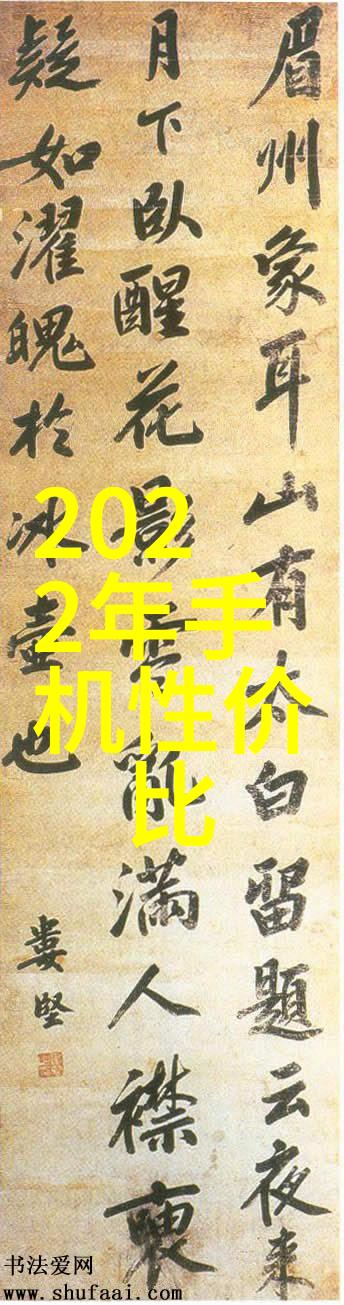 眉州象耳山有太白留題云夜来
月下臥醒花影零亂滿人襟
疑如濯魄於冰壺也
婁堅
202
2年手
机性价
比
书法爱网
www.shufaai.com